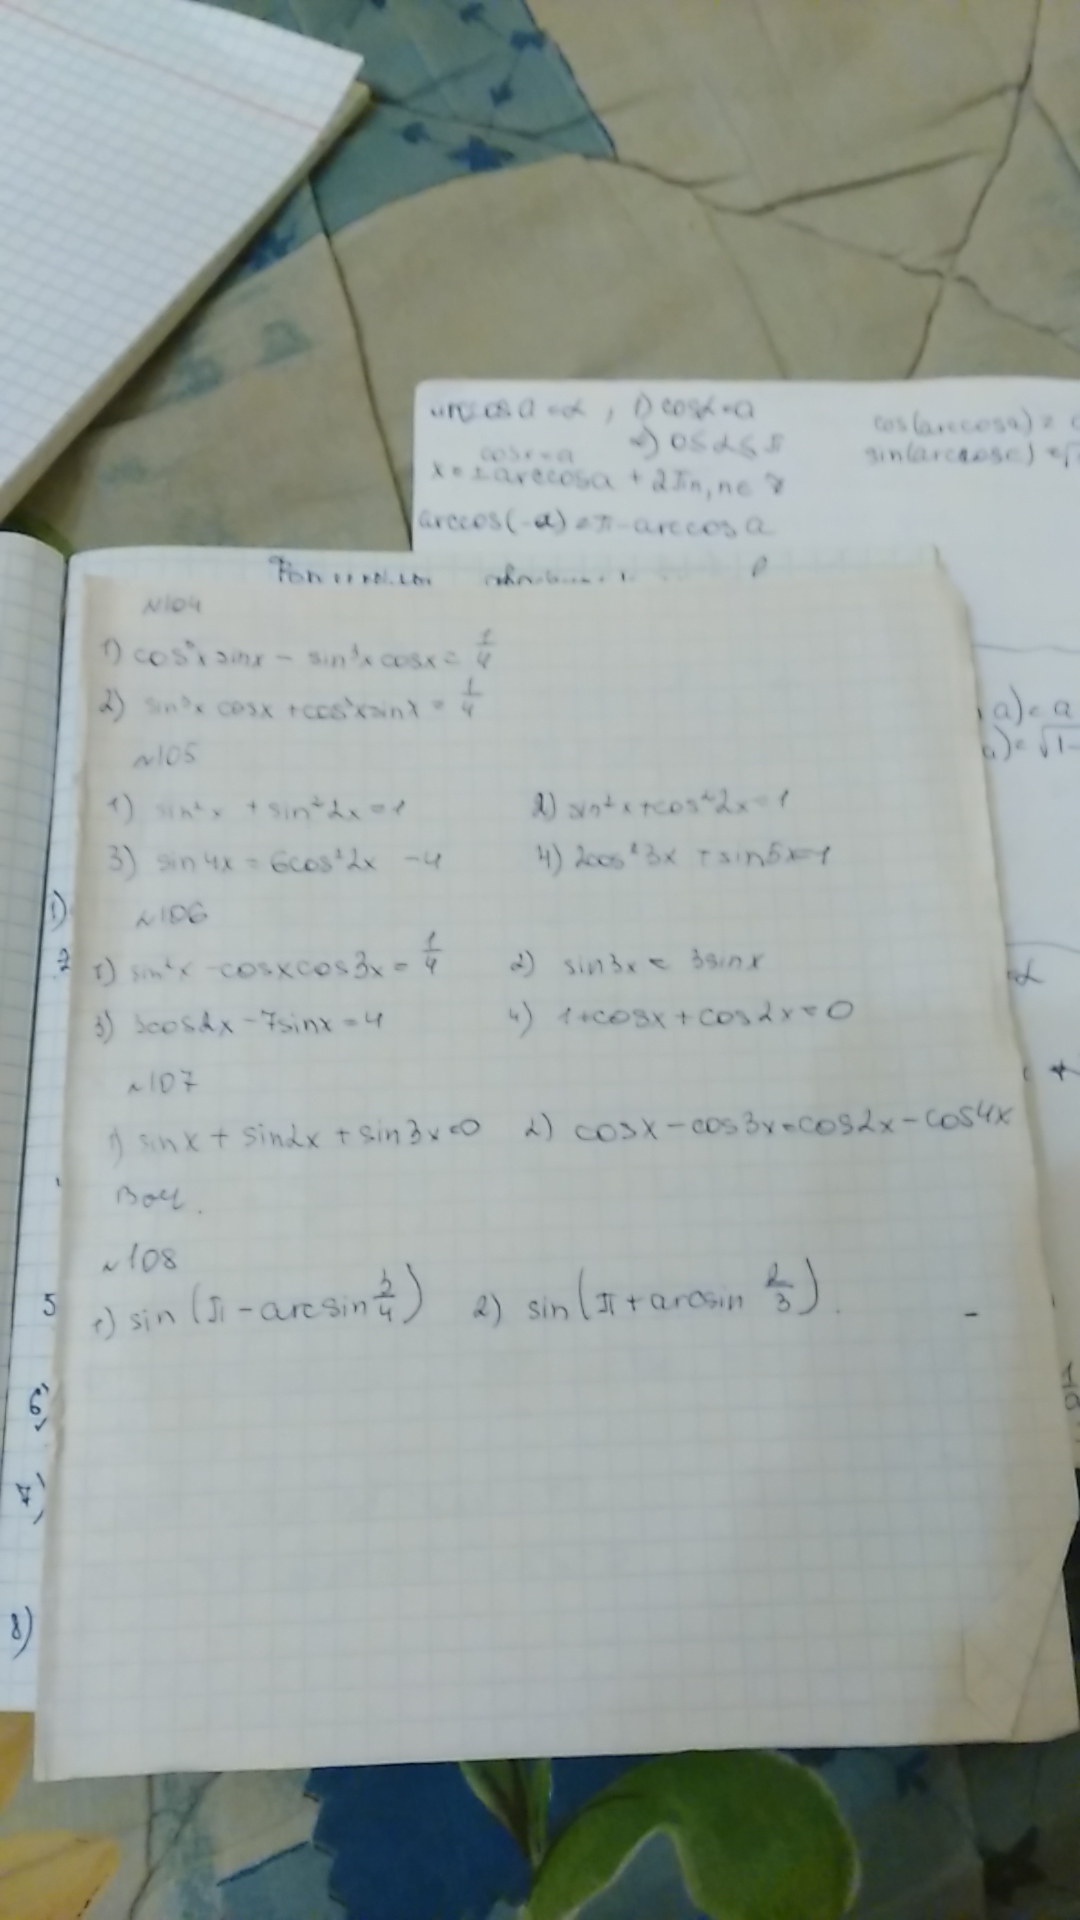 arccos a = α, 1) cos α = a
2) 0≤α≤π
cos x = a
x = ± arccos a + 2πn, n∈Z
arccos(-a) = π - arccos a
cos(arccos a) =
sin(arccos a) = √
a) = a
a) = √1-
№104
1) cos³x sinx - sin³x cosx = 1/4
2) sin³x cosx + cos³x sinx = 1/4
№105
1) sin²x + sin²2x = 1
2) sin²x + cos²2x = 1
3) sin4x = 6cos²2x - 4
4) 2cos²3x + sin5x = 1
№106
1) sin²x - cosxcos3x = 1/4
2) sin3x = 3sinx
3) 3cos2x - 7sinx = 4
4) 1 + cosx + cos2x = 0
№107
1) sinx + sin2x + sin3x = 0
2) cosx - cos3x = cos2x - cos4x
Выч.
№108
1) sin(π - arcsin 3/4)
2) sin(π + arcsin 2/3).
1)
2
5
6)
7)
8)